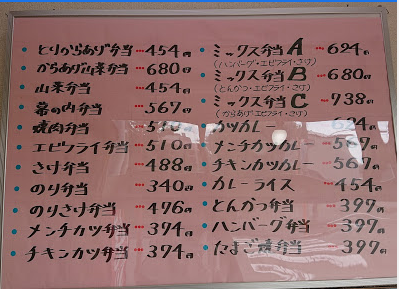 とりからあげ弁当 454円
からあげ山菜弁当 680円
山菜弁当 454円
幕の内弁当 567円
焼肉弁当 510円
エビフライ弁当 510円
さけ弁当 488円
のり弁当 340円
のりさけ弁当 476円
メンチカツ弁当 394円
チキンカツ弁当 394円
ミックス弁当A 624円
(ハンバーグ・エビフライ・さけ)
ミックス弁当B 680円
(とんかつ・エビフライ・さけ)
ミックス弁当C 738円
(からあげ・エビフライ・さけ)
カツカレー 624円
メンチカツカレー 567円
チキンカツカレー 567円
カレーライス 454円
とんかつ弁当 397円
ハンバーグ弁当 397円
たまご焼弁当 397円